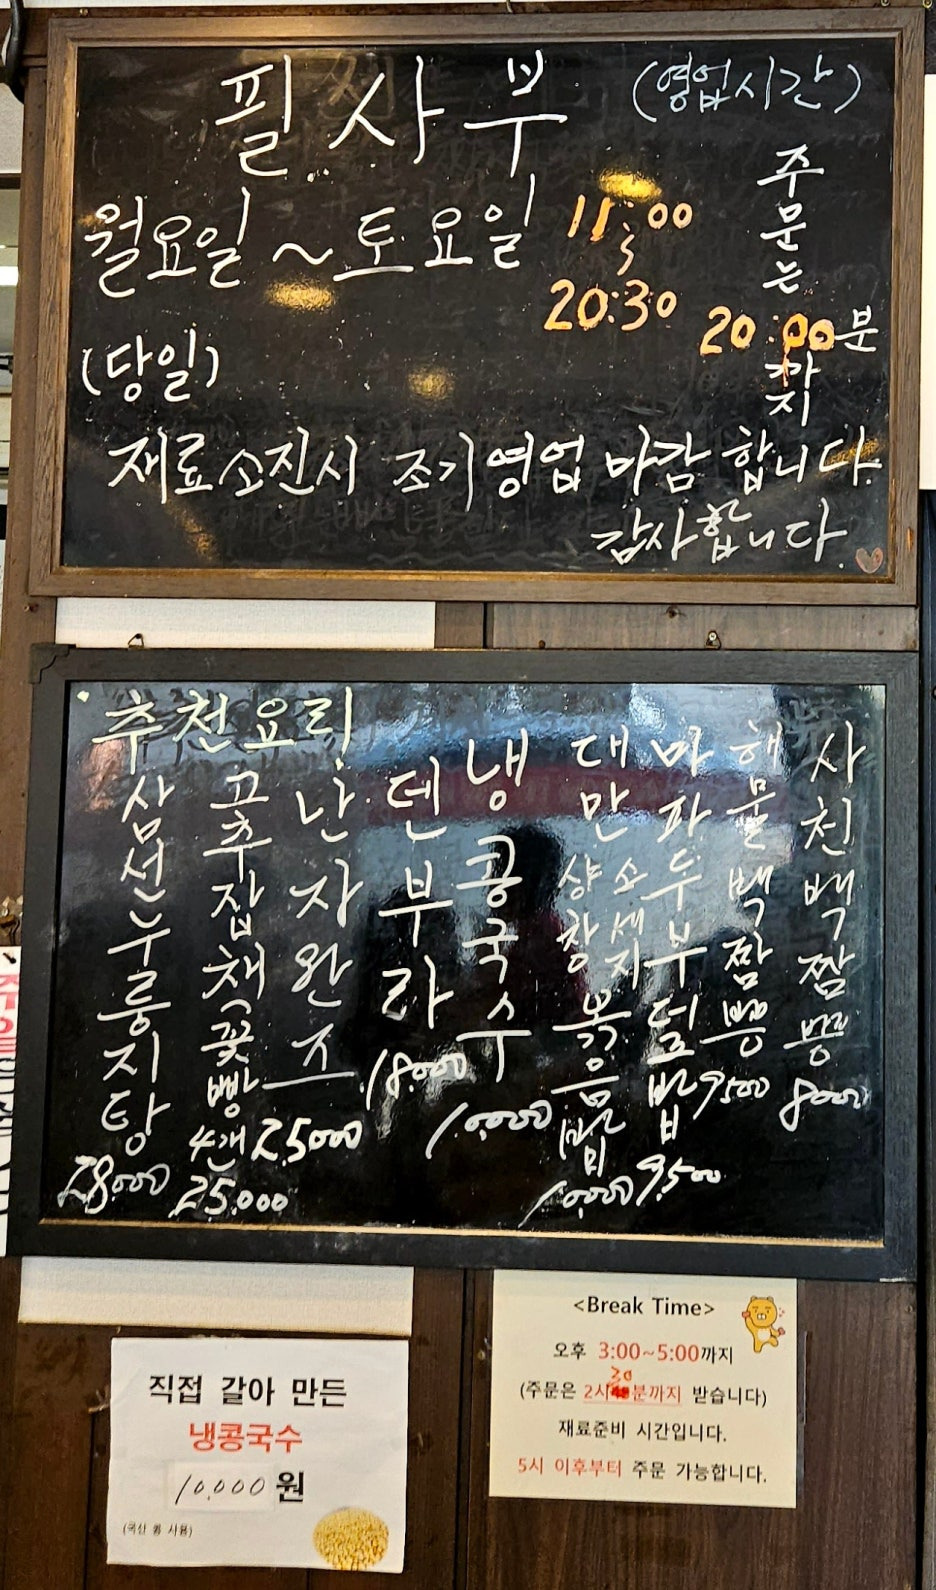 필사부 (영업시간)
월요일 ~ 토요일 11:00
~
20:30
주문는
20:00분
까지
(당일)
재료소진시 조기영업 마감 합니다.
감사합니다.
추천요리
삼선누룽지탕 28,000
고추잡채 꽃빵 4개 25,000
난자완즈 25,000
덴부라 18,000
냉콩국수 10,000
대만 샹창 소세지 볶음밥 10,000
마파두부덮밥 9,500
해물백짬뽕 9500
사천백짬뽕 8000
직접 갈아 만든
냉콩국수
10,000원
(국산 콩 사용)
<Break Time>
오후 3:00~5:00까지
(주문은 2시20분까지 받습니다)
재료준비 시간입니다.
5시 이후부터 주문 가능합니다.